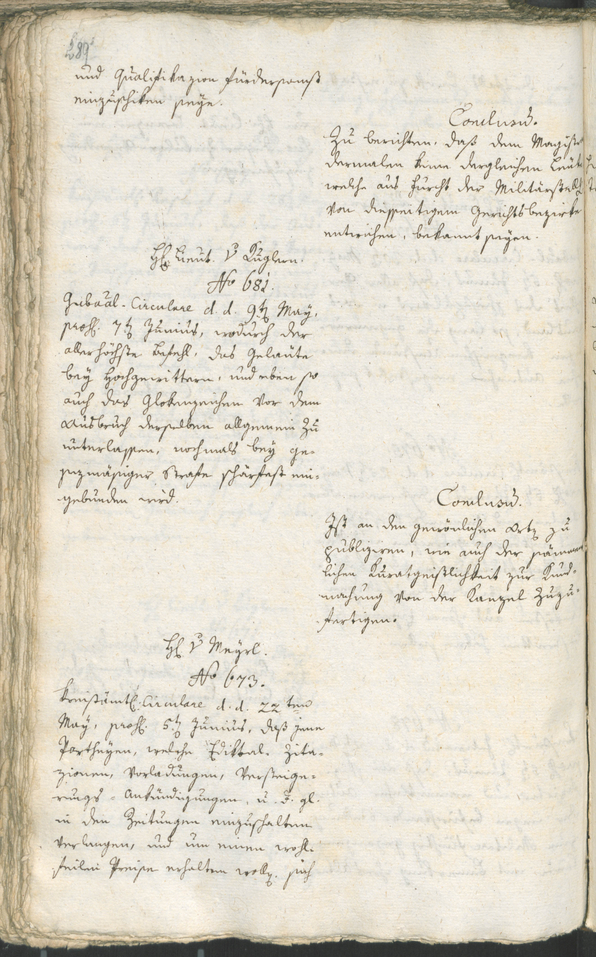 289
und Qualifikazion fürdersamst
einzuschiken seye.
Conclusũ.
Zu berichten, daß dem Magistr
dermalen keine dergleichen Leute
welche aus Furcht der Militärstell
von diesseitigem Gerichtsbezirke
entwichen, bekannt seyen.
H: Lieut. v Kuglern.
No 681.
Gubãl. Circulare d. d. 9t May,
prs. 7t Junius, wodurch der
allerhöchste Befehl, das Geläute
bey Hochgewittern, und eben so
auch das Glokenzeichen vor dem
Ausbruch derselben allgemein zu
unterlassen, nochmals bey ge-
sezmäsiger Strafe schärfest ein-
gebunden wird.
Conclusũ.
Ist an den gewönlichen Ort zu
publiziren, wie auch der sämmt-
lichen Kuratgeistlichkeit zur Kund-
machung von der Kanzel zuzu-
fertigen.
H: v Mayrl.
No 673.
Kreisämtl: Circulare d. d. 22ten
May, prs. 5t Junius, daß jene
Partheyen, welche Ediktal-Zita-
zionen, Vorladungen, Versteige-
rungs-Ankündigungen, u. d. gl.
in den Zeitungen einzuschalten
verlangen, und um einen wohl-
feilen Preise erhalten woll, sich